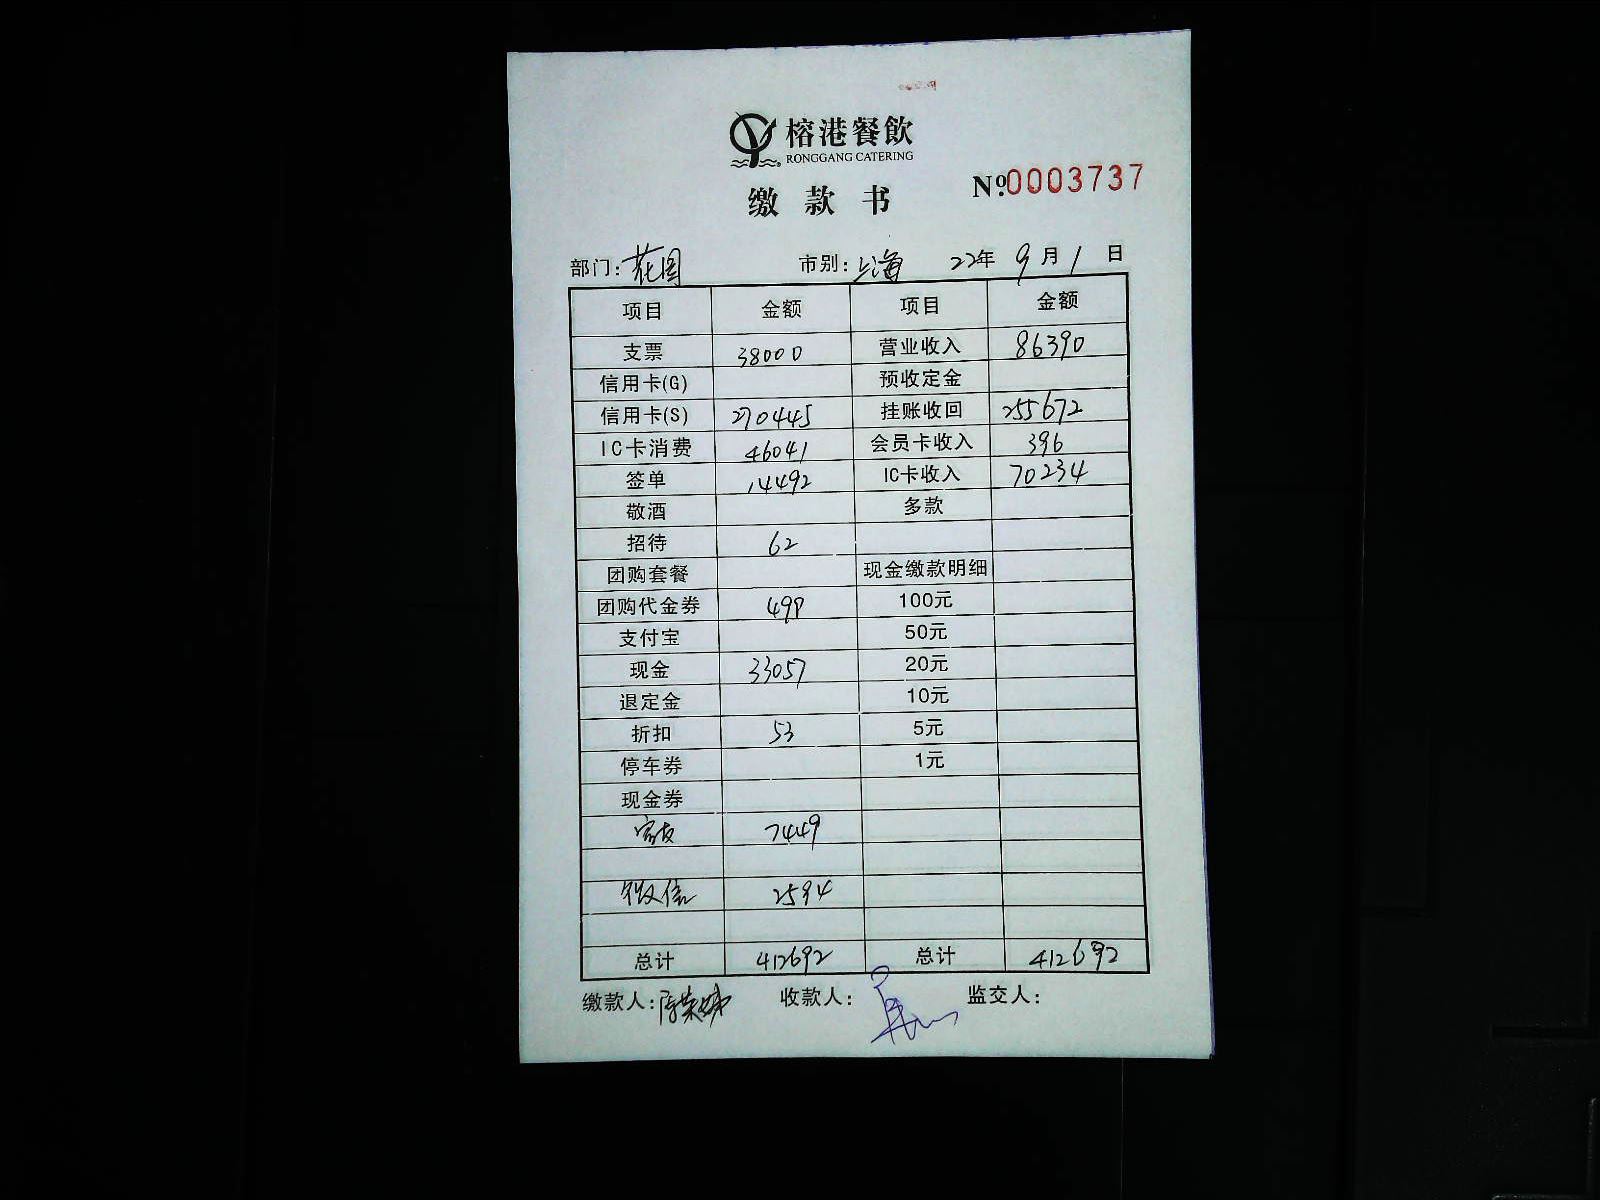 榕港餐飲
RONGGANG CATERING
缴款书
Nº.0003737
部门:花园 市别:上海 22年9月1日
项目 金额 项目 金额
支票 38000 营业收入 86390
信用卡(G) 预收定金
信用卡(S) 270445 挂账收回 255672
IC卡消费 46041 会员卡收入 396
签单 14492 IC卡收入 70234
敬酒 多款
招待 62
团购套餐 现金缴款明细
团购代金券 499 100元
支付宝 50元
现金 33057 20元
退定金 10元
折扣 53 5元
停车券 1元
现金券
7449
微信 2594
总计 412692 总计 412692
缴款人: 收款人: 监交人: